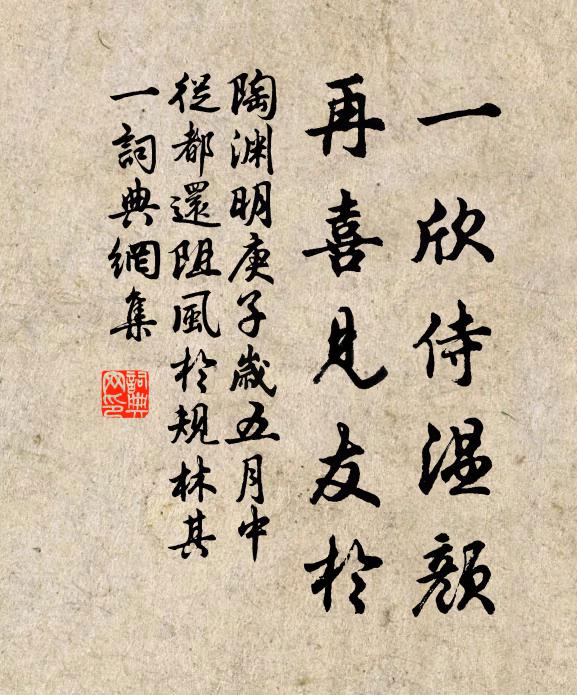 一欣侍温顏
再喜見友於
陶渊明庚子歲五月中
從都還阻風於規林其
一詞典網集
詞典
网印